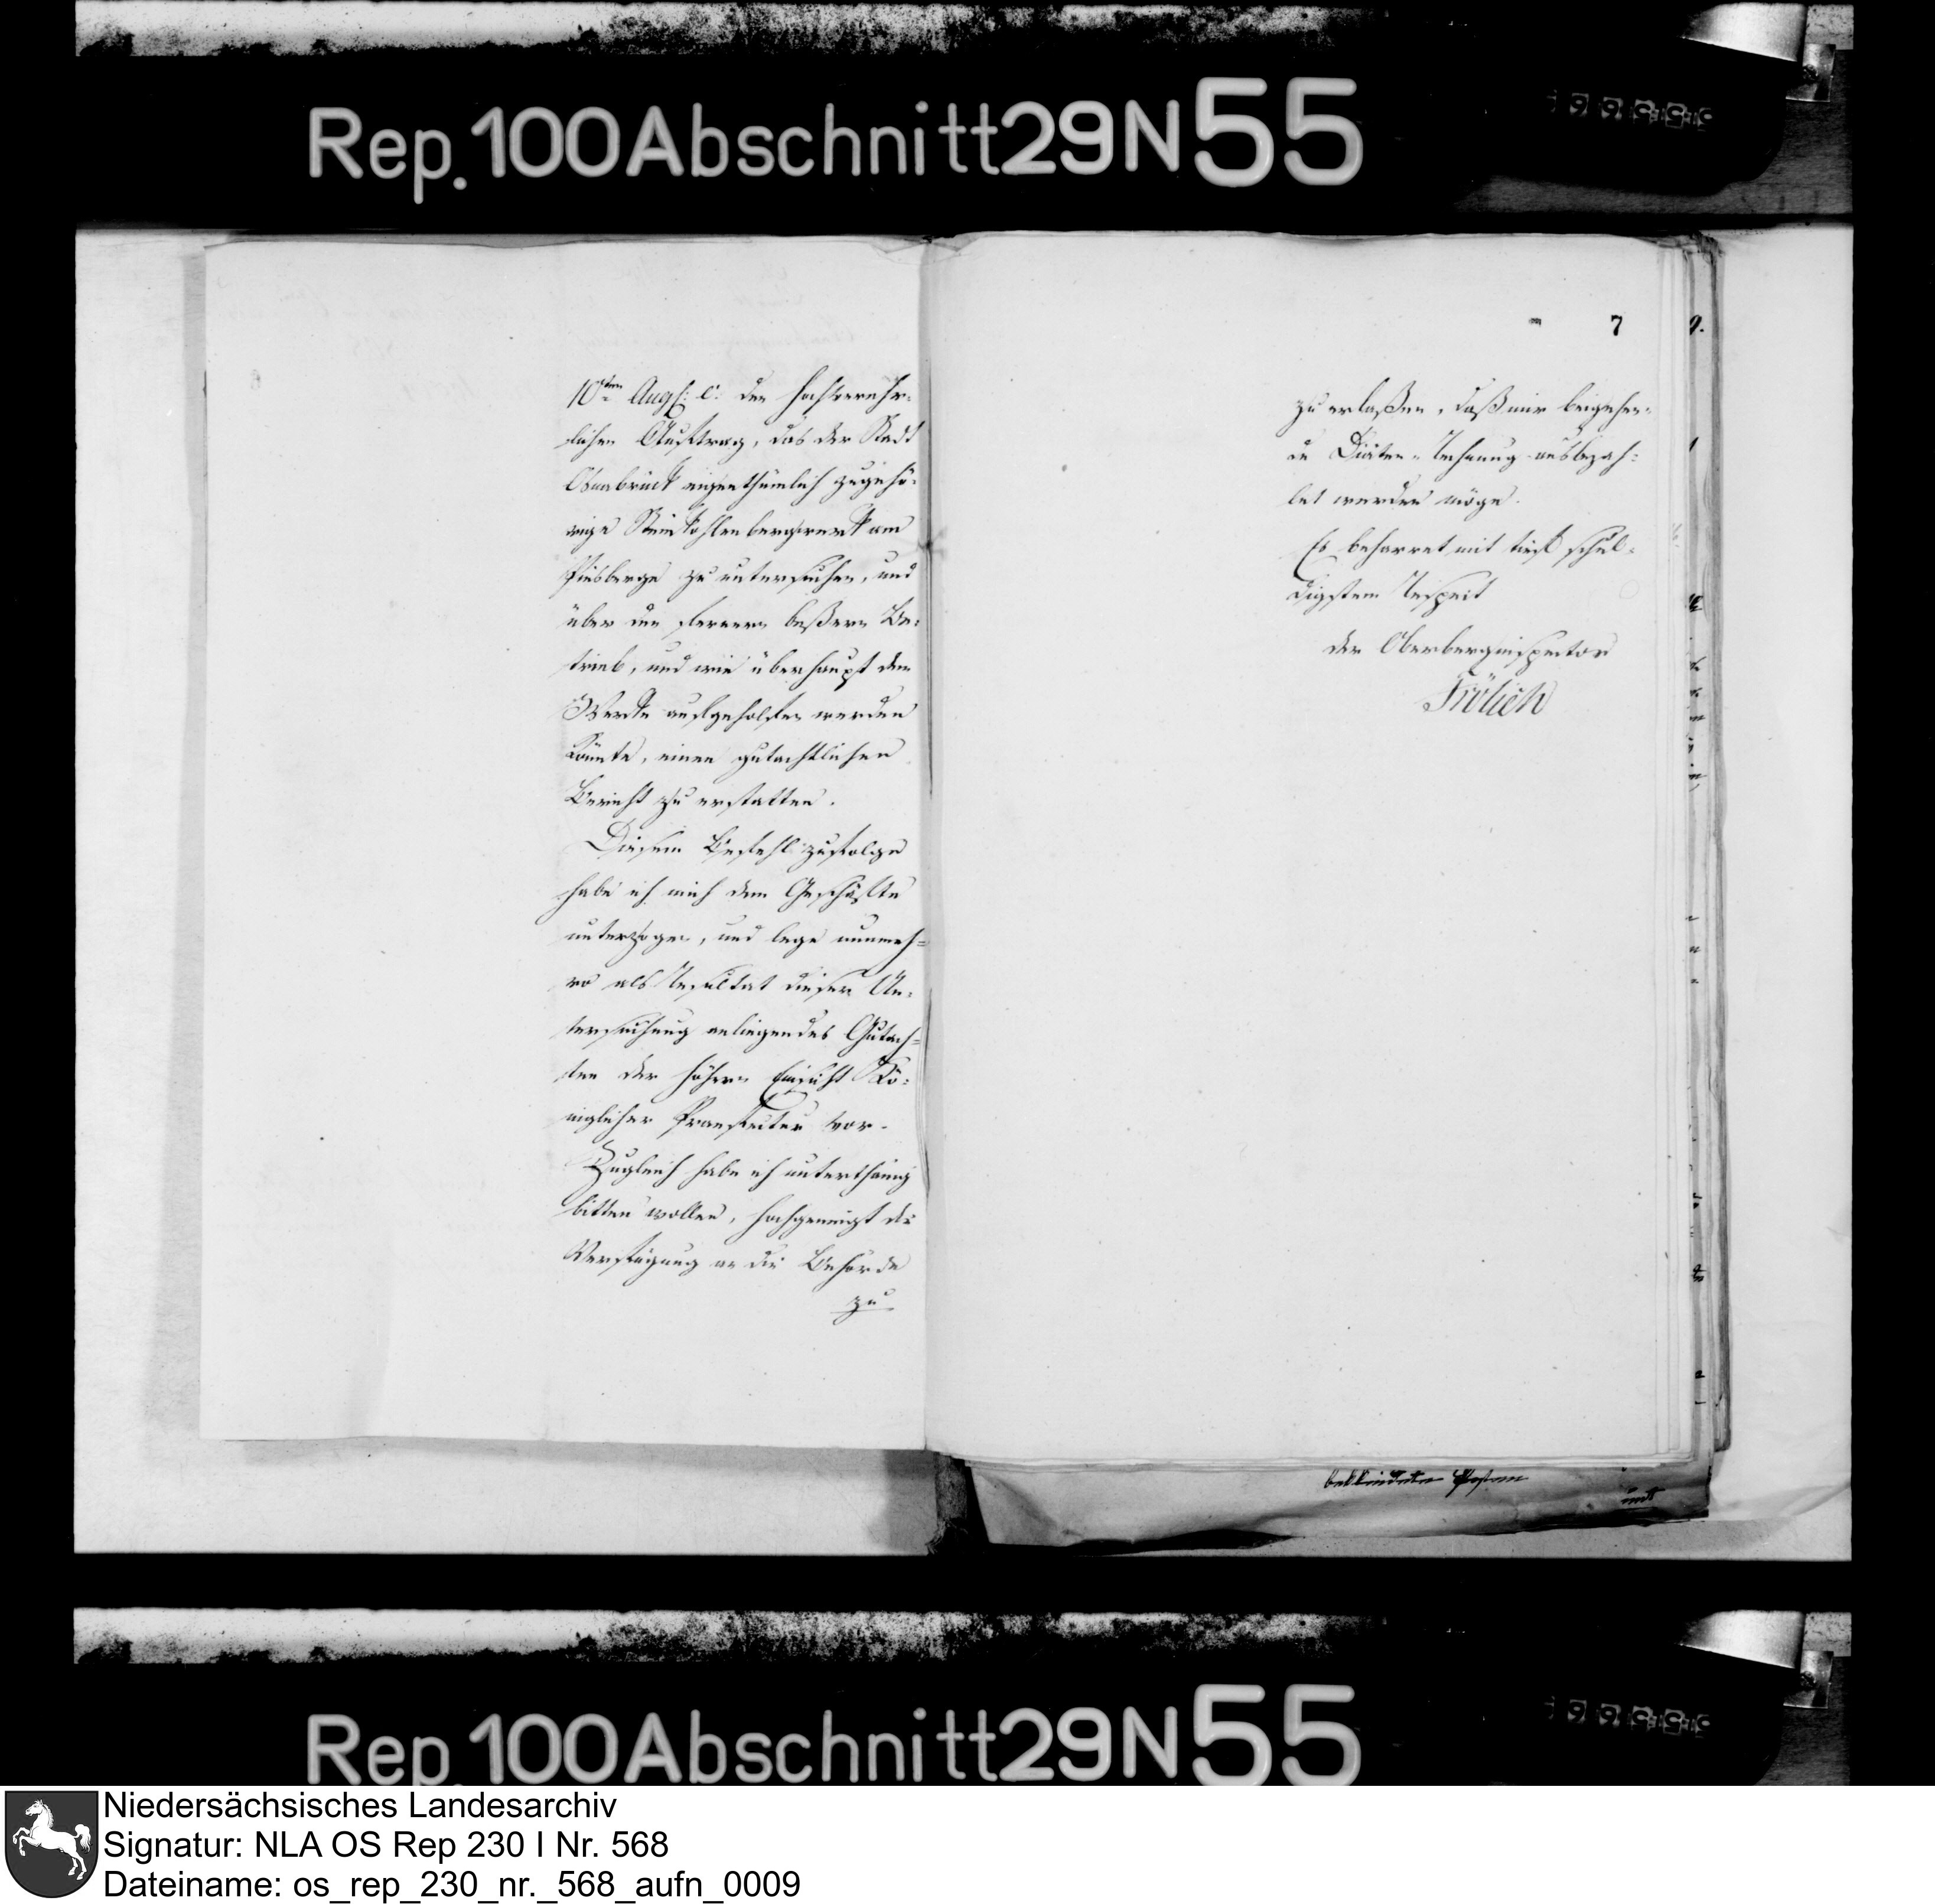 Rep. 100 Abschnitt 29 N 55
10ten Augst: c: den hochverehr-
lichen Auftrag, das der Stadt
Osnabrück eigenthümlich zugehö-
rige Steinkohlenbergwerk am
Piesberge zu untersuchen, und
über den fernern beßern Be-
trieb, und wie überhaupt dem
Werke aufgeholfen werden
könnte, einen gutachtlichen
Bericht zu erstatten.
Diesem Befehl zufolge
habe ich mich dem Geschäfte
unterzogen, und lege nunmeh-
ro als Resultat dieser Un-
tersuchung anliegendes Gutach-
ten der höhern Einsicht Kö-
niglicher Praefectur vor.
Zugleich habe ich unterthänig
bitten wollen, hochgeneigt die
Verfügung an die Behörde
zu
7
9.
zu erlaßen, daß mir beigehen-
de Diäten-Rechnung ausbezah-
let werden möge.
Es beharret mit tiefst schul-
digstem Respect
der Oberberginspector
Frölich
und
Rep. 100 Abschnitt 29 N 55
Niedersächsisches Landesarchiv
Signatur: NLA OS Rep 230 I Nr. 568
Dateiname: os_rep_230_nr._568_aufn_0009